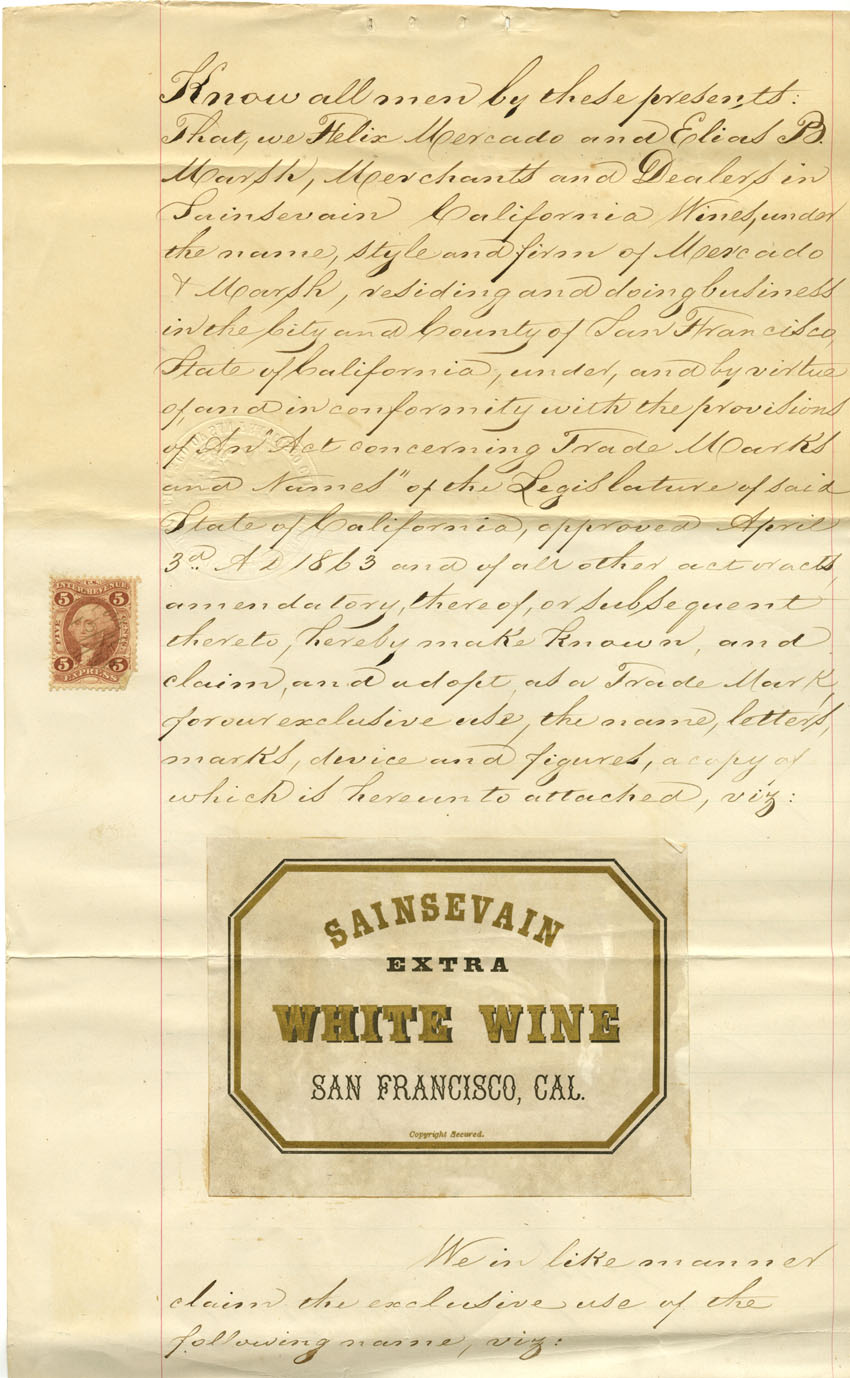 Know all men by these presents:
That, we Felix Mercado and Elias B.
Marsh, Merchants and Dealers in
Sainsevain California Wines, under
the name, style and firm of Mercado
& Marsh, residing and doing business
in the City and County of San Francisco,
State of California, under, and by virtue
of, and in conformity with the provisions
of An "Act concerning Trade Marks
and Names" of the Legislature of said
State of California, approved April
3d. A D 1863 and of all other act or acts,
amendatory, thereof, or subsequent
thereto, hereby make known, and
claim, and adopt, as a Trade Mark,
for our exclusive use, the name, letters,
marks, device and figures, a copy of
which is hereunto attached, viz:
U.S.
INTER. REVENUE
5 5
FIVE CENTS
5 5
EXPRESS
SAINSEVAIN
EXTRA
WHITE WINE
SAN FRANCISCO, CAL.
Copyright Secured.
We in like manner
claim the exclusive use of the
following name, viz: